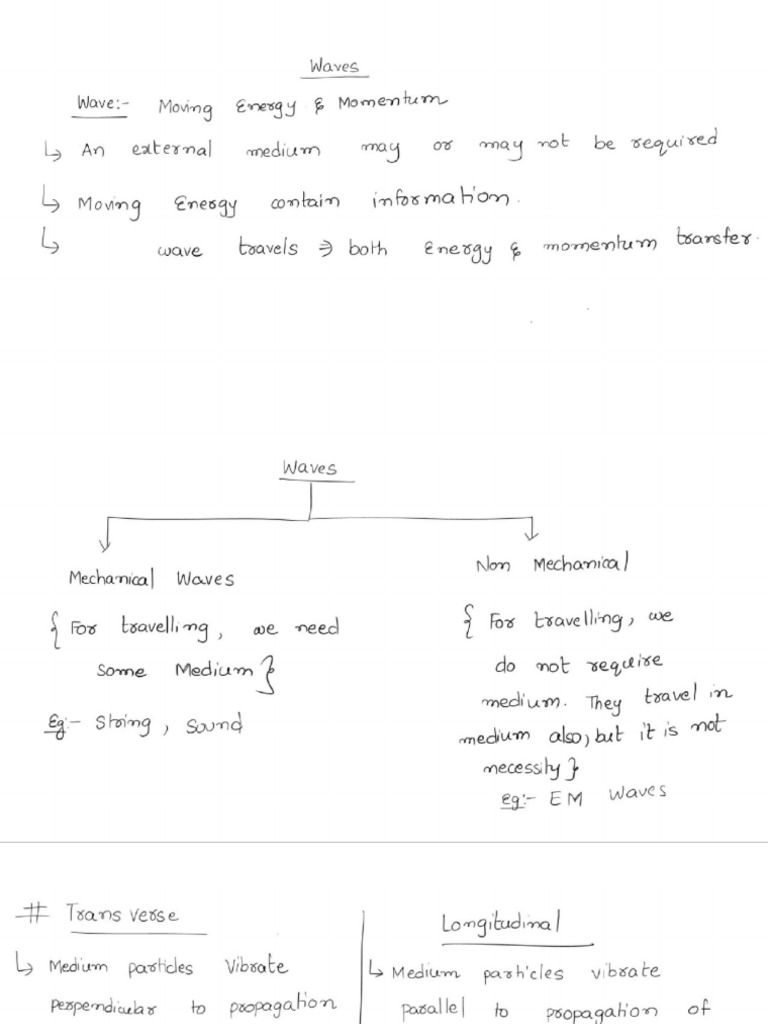 Waves
Wave:- Moving Energy & Momentum
↳ An external medium may or may not be required
↳ Moving Energy contain information.
↳ wave travels ⇒ both Energy & momentum transfer.
Waves
Mechanical Waves
{ For travelling, we need
some Medium }
Eg:- String, Sound
Non Mechanical
{ For travelling, we
do not require
medium. They travel in
medium also, but it is not
necessity }
Eg:- EM Waves
# Transverse
↳ Medium particles Vibrate
Perpendicular to propagation
Longitudinal
↳ Medium particles vibrate
parallel to propagation of